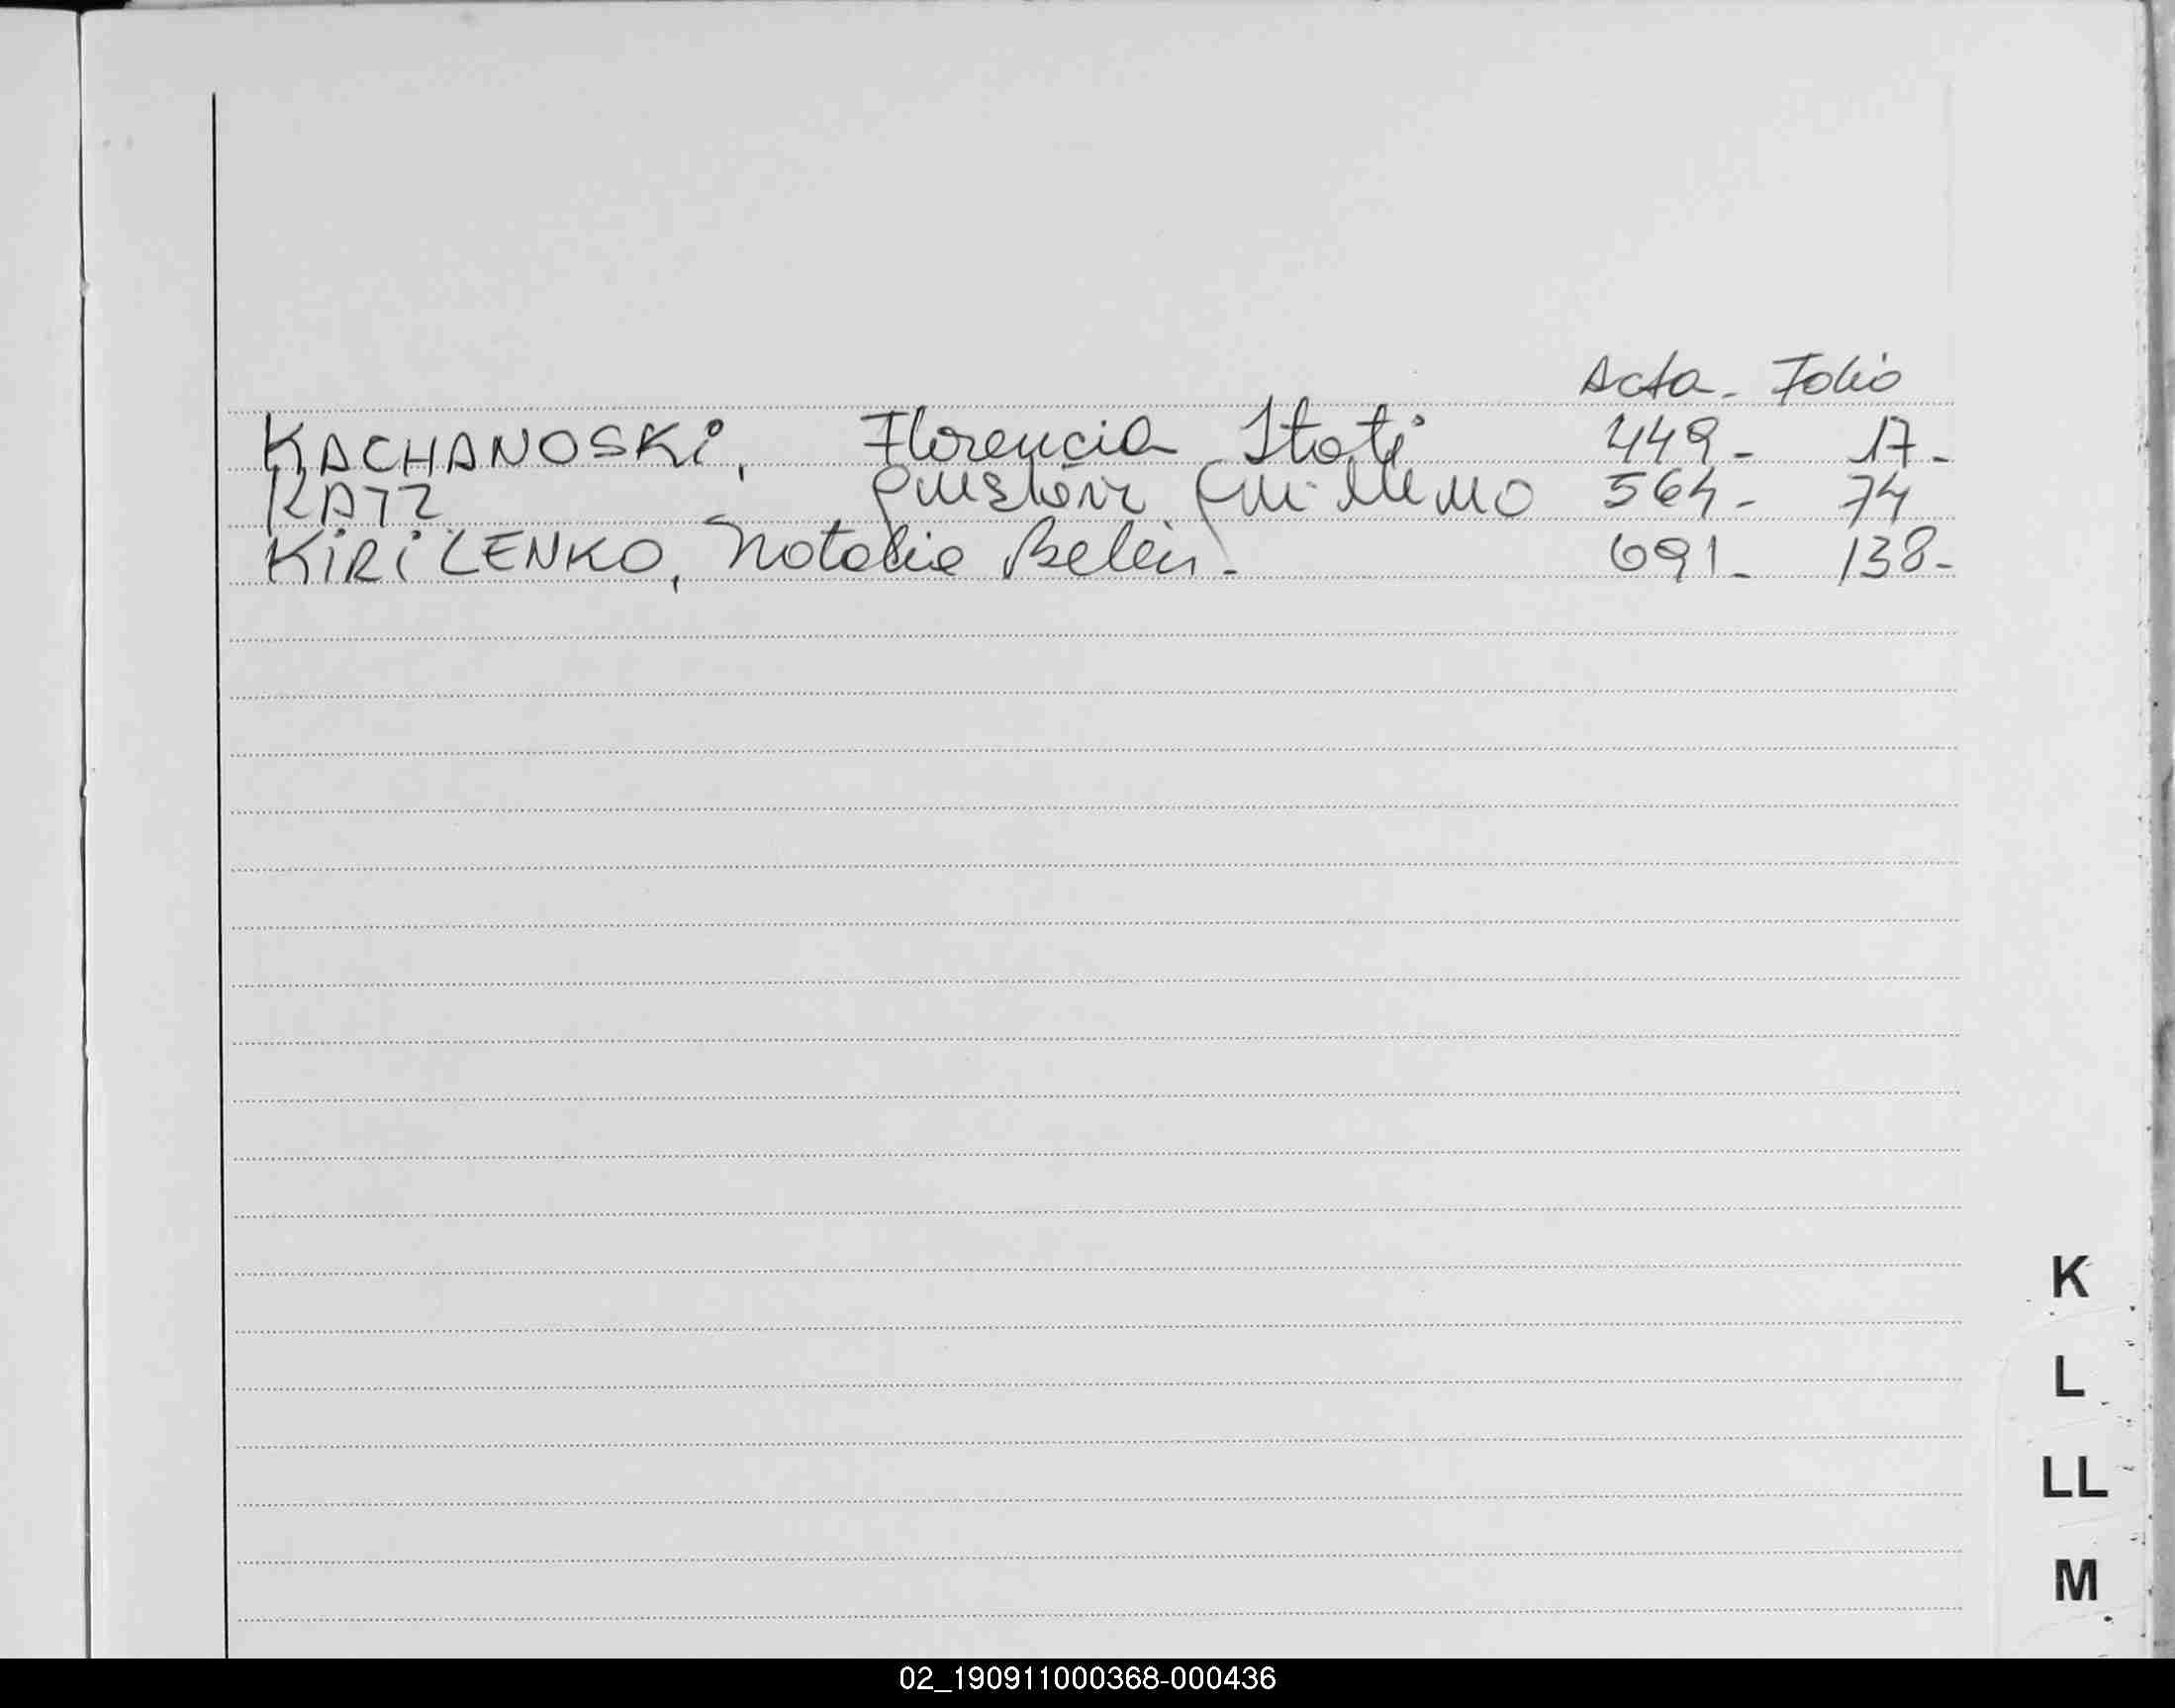 Acta - Folio
KACHANOSKi, Florencia Itatí 449 - 17 -
KATZ Guillermo 564 - 74
KiRiLENKO, Natalia Belén - 691 - 138 -
K
L
LL
M
02_190911000368-000436